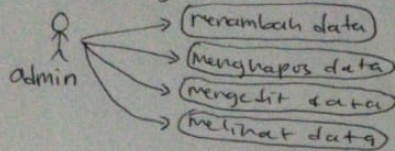 menambah data
menghapus data
admin
mengedit data
melihat data